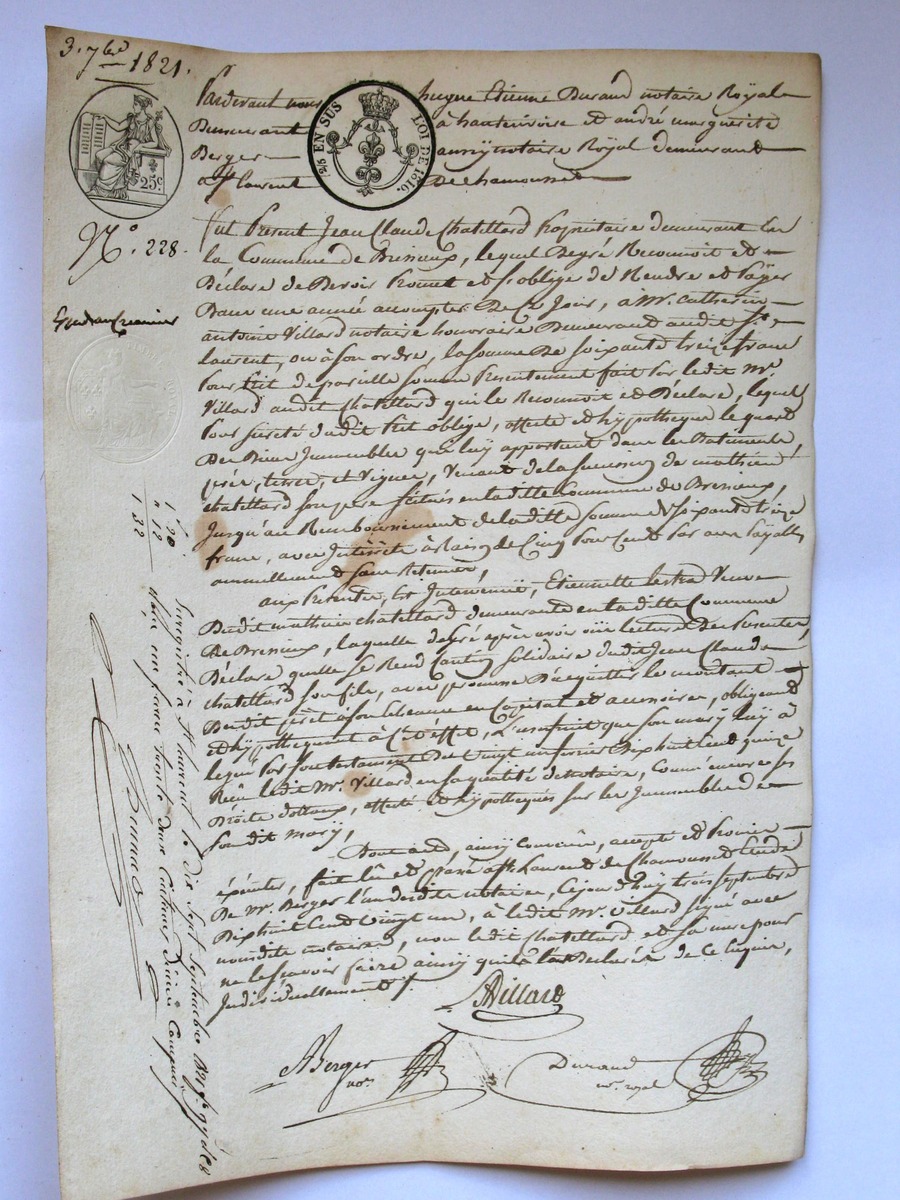 3. 7bre 1821.
25c.
2/5 EN SUS
LOI DE 1816.
N.° 228.
Pardevant nous hugue Etienne Durand notaire Royal
Demeurant à hauterivoire et andré marguerite
Berger aussy notaire Royal demeurant
a St laurent de chamousset
fut Present Jean Claude Chatellard Propriétaire demeurant En
la Commune de Brussieux, lequel Degré Reconnoit et
Déclare de Devoir Promet et s'oblige de Rendre et Payer
Dans une année a compter De Ce Jour, à Mr. Catherin
antoine Villard notaire honoraire Demeurant audit St.
Laurent, ou à son ordre, la somme De soixante treize francs
Pour Prêt de pareille somme Presentement fait Par ledit Mr.
Villard audit Chatellard qui le Reconnoit et Déclare, lequel
Pour sureté dudit Prêt oblige, affecte et hypotheque le quart
Des Biens Immeubles qui luy appartient dans les Batiments,
prés, terres, et Vignes, Venant de la succession de mathieu
chatellard son pere scitués en laditte Commune de
Jusqu'au Remboursement de laditte somme de soixante treize
francs, avec Intérêts à Raison de Cinq Pour Cent Par an Payables
annuellement sans Retenue,
aux Presentes, est Intervenüe, Etiennette Veuve
Dudit mathieu chatellard demeurante en laditte Commune
De laquelle degré après avoir oüi lecture Des Presentes,
Déclare quelle se Rend Caution solidaire dudit Jean Claude
chatellard son fils, avec promesse D'acquitter le montant
Dudit prêt à son Echeance en Capital et accessoires, obligeant
et hypothequant à Cet Effet, L'usufruit que son mary luy à
legué Par son testament du Vingt un fevrier Dix huit Cent quinze
Reçu ledit Mr. Villard en sa qualité de Notaire, Comme encore ses
Droits dotaux, affectés et hypothequés sur les Immeubles de
son dit mary,
Dont acte, ainsy Convenu, accepté et Promis
fait lû et passé a St. Laurent de Chamousset Etude
De Mr. Berger l'un desdits notaires, Cejourd'huy trois septembre
Dix huit Cent Vingt un, à ledit Mr. Villard signé avec
nousdits notaires, non ledit Chatellard et sa mere pour
ne le scavoir faire ainsy qu'ils l'ont Declaré de Ce Enquis,
Individuellement
Villard
Berger
nre.
Durand
nre. royal
1 20
" 12
1 32
Enregistré à St Laurent le dix sept septembre 1821
Reçu un franc trente deux Centimes Dixième Compris